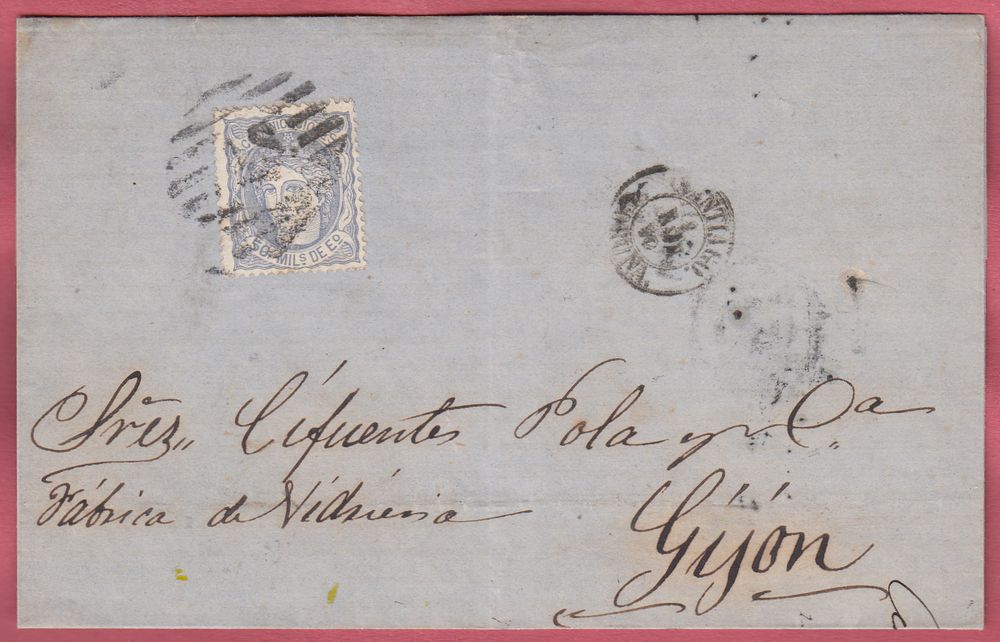 50 MILS DE Eo
Srẽz,, Cifuentes Pola y Ca.
Fábrica de Vidrieria
Gijón